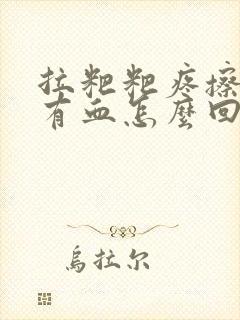 拉粑粑疼擦
有血怎麼回
烏拉尔